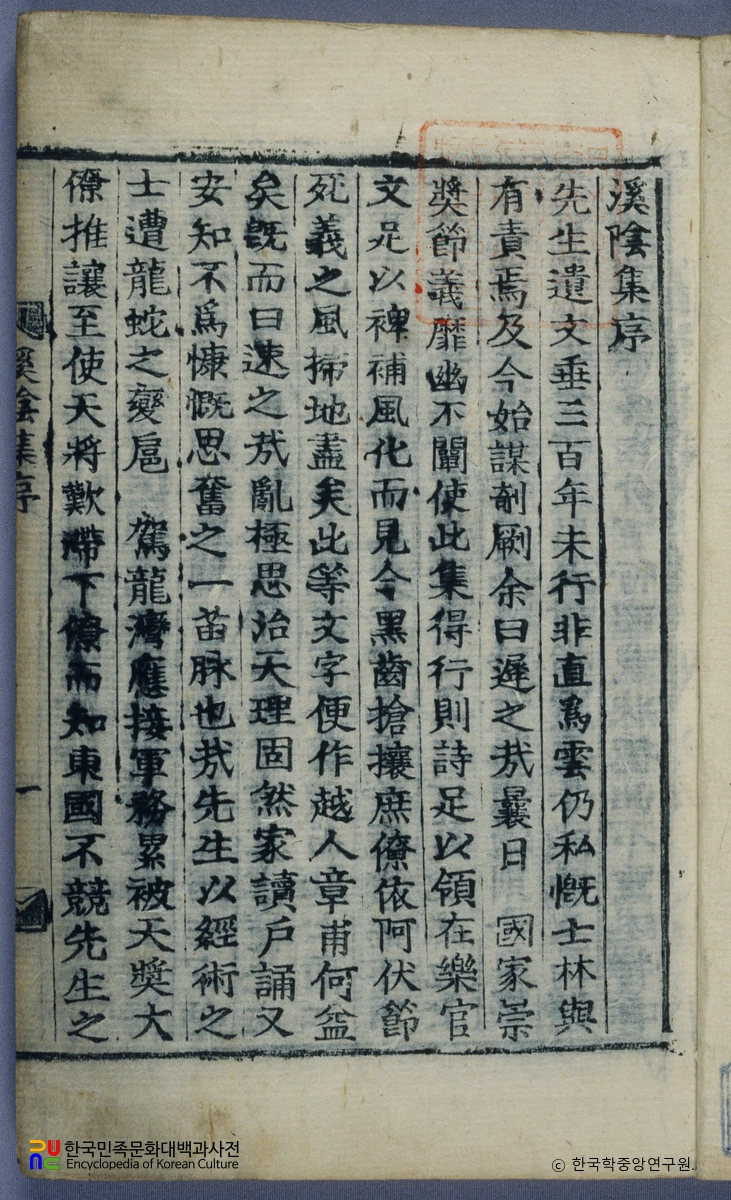 溪陰集序
先生遺文垂三百年未行非直爲雲仍私慨士林與
有責焉及今始謀剞劂余曰遲之哉曩日 國家崇
奬節義靡幽不闡使此集得行則詩足以領在樂官
文足以裨補風化而見今黑齒搶攘庶僚依阿伏節
死義之風掃地盡矣此等文字便作越人章甫何益
矣旣而曰速之哉亂極思治天理固然家讀戶誦又
安知不爲慷慨思奮之一苗脉也哉先生以經術之
士遭龍蛇之變扈 駕龍灣應接軍務累被天奬大
僚推讓至使天將歎滯下僚而知東國不競先生之
溪陰集序
一
한국민족문화대백과사전
Encyclopedia of Korean Culture
© 한국학중앙연구원